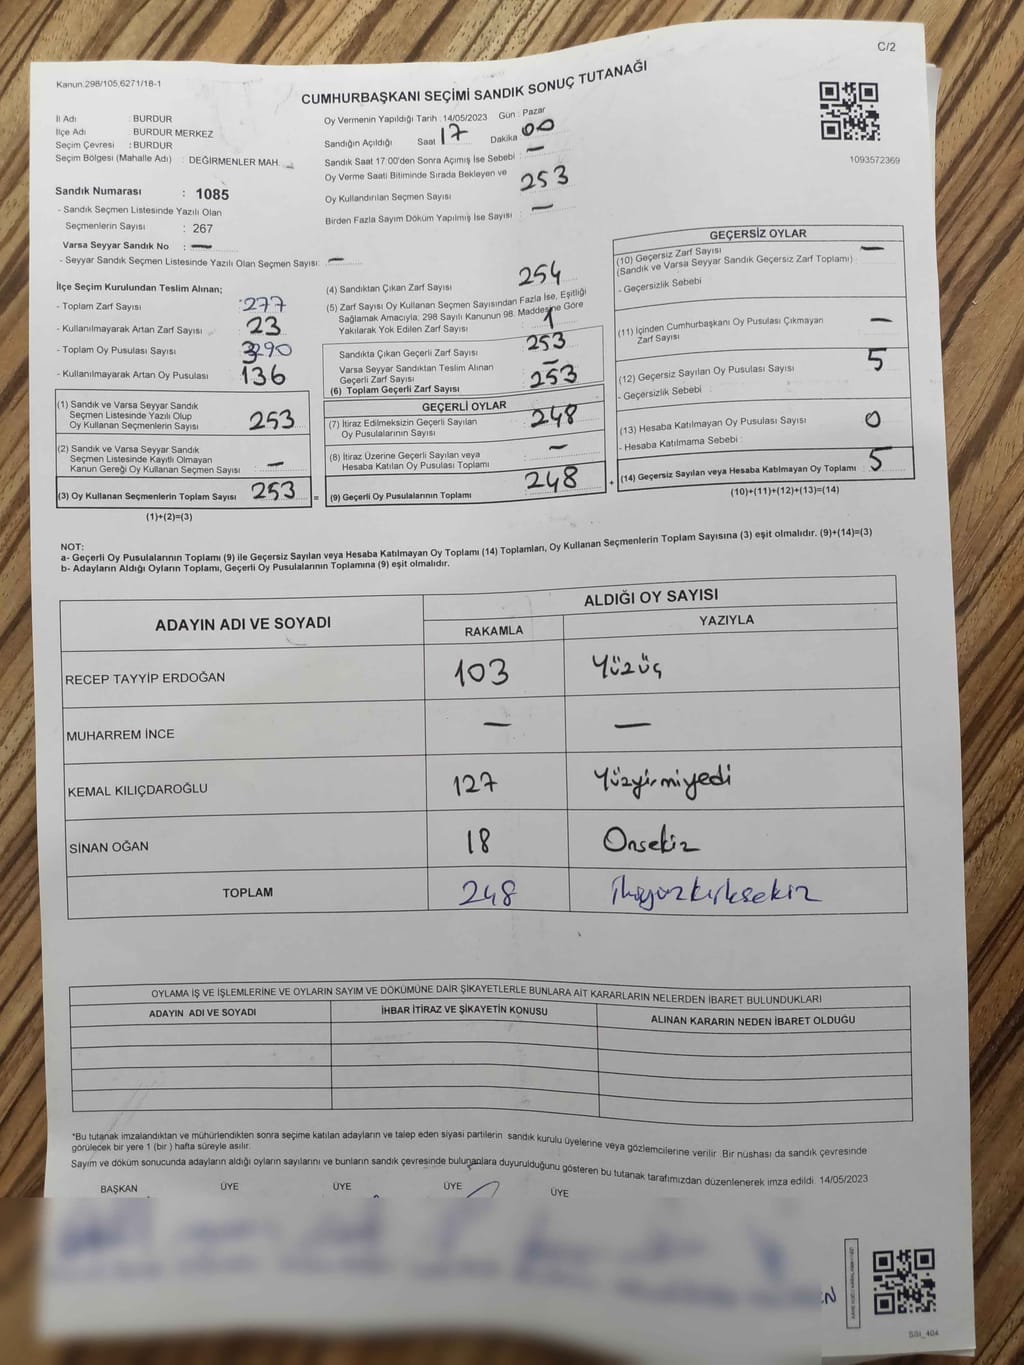 C/2
Kanun.298/105,6271/18-1
CUMHURBAŞKANI SEÇİMİ SANDIK SONUÇ TUTANAĞI
İl Adı : BURDUR
İlçe Adı : BURDUR MERKEZ
Seçim Çevresi : BURDUR
Seçim Bölgesi (Mahalle Adı) : DEĞİRMENLER MAH.
Sandık Numarası : 1085
- Sandık Seçmen Listesinde Yazılı Olan
Seçmenlerin Sayısı : 267
Varsa Seyyar Sandık No : —
- Seyyar Sandık Seçmen Listesinde Yazılı Olan Seçmen Sayısı: —
Oy Vermenin Yapıldığı Tarih : 14/05/2023 Gün : Pazar
Sandığın Açıldığı Saat 17 Dakika 00
Sandık Saat 17:00'den Sonra Açımış İse Sebebi : —
Oy Verme Saati Bitiminde Sırada Bekleyen ve
Oy Kullandırılan Seçmen Sayısı 253
Birden Fazla Sayım Döküm Yapılmış İse Sayısı : —
1093572369
İlçe Seçim Kurulundan Teslim Alınan;
- Toplam Zarf Sayısı : 277
- Kullanılmayarak Artan Zarf Sayısı : 23
- Toplam Oy Pusulası Sayısı : 390
- Kullanılmayarak Artan Oy Pusulası : 136
(1) Sandık ve Varsa Seyyar Sandık
Seçmen Listesinde Yazılı Olup
Oy Kullanan Seçmenlerin Sayısı : 253
(2) Sandık ve Varsa Seyyar Sandık
Seçmen Listesinde Kayıtlı Olmayan
Kanun Gereği Oy Kullanan Seçmen Sayısı : —
(3) Oy Kullanan Seçmenlerin Toplam Sayısı 253
(1)+(2)=(3)
(4) Sandıktan Çıkan Zarf Sayısı 254
(5) Zarf Sayısı Oy Kullanan Seçmen Sayısından Fazla İse, Eşitliği
Sağlamak Amacıyla, 298 Sayılı Kanunun 98. Maddesine Göre
Yakılarak Yok Edilen Zarf Sayısı 1
Sandıkta Çıkan Geçerli Zarf Sayısı 253
Varsa Seyyar Sandıktan Teslim Alınan
Geçerli Zarf Sayısı —
(6) Toplam Geçerli Zarf Sayısı 253
GEÇERLİ OYLAR
(7) İtiraz Edilmeksizin Geçerli Sayılan
Oy Pusulalarının Sayısı 248
(8) İtiraz Üzerine Geçerli Sayılan veya
Hesaba Katılan Oy Pusulası Toplamı : —
=
(9) Geçerli Oy Pusulalarının Toplamı 248
+
GEÇERSİZ OYLAR
(10) Geçersiz Zarf Sayısı —
(Sandık ve Varsa Seyyar Sandık Geçersiz Zarf Toplamı) :
- Geçersizlik Sebebi :
(11) İçinden Cumhurbaşkanı Oy Pusulası Çıkmayan
Zarf Sayısı : —
(12) Geçersiz Sayılan Oy Pusulası Sayısı : 5
- Geçersizlik Sebebi :
(13) Hesaba Katılmayan Oy Pusulası Sayısı : 0
- Hesaba Katılmama Sebebi :
(14) Geçersiz Sayılan veya Hesaba Katılmayan Oy Toplamı : 5
(10)+(11)+(12)+(13)=(14)
NOT:
a- Geçerli Oy Pusulalarının Toplamı (9) ile Geçersiz Sayılan veya Hesaba Katılmayan Oy Toplamı (14) Toplamları, Oy Kullanan Seçmenlerin Toplam Sayısına (3) eşit olmalıdır. (9)+(14)=(3)
b- Adayların Aldığı Oyların Toplamı, Geçerli Oy Pusulalarının Toplamına (9) eşit olmalıdır.
ADAYIN ADI VE SOYADI ALDIĞI OY SAYISI
RAKAMLA YAZIYLA
RECEP TAYYİP ERDOĞAN 103 Yüzüç
MUHARREM İNCE — —
KEMAL KILIÇDAROĞLU 127 Yüzyirmiyedi
SİNAN OĞAN 18 Onsekiz
TOPLAM 248 İkiyüzkırksekiz
OYLAMA İŞ VE İŞLEMLERİNE VE OYLARIN SAYIM VE DÖKÜMÜNE DAİR ŞİKAYETLERLE BUNLARA AİT KARARLARIN NELERDEN İBARET BULUNDUKLARI
ADAYIN ADI VE SOYADI İHBAR İTİRAZ VE ŞİKAYETİN KONUSU ALINAN KARARIN NEDEN İBARET OLDUĞU
*Bu tutanak imzalandıktan ve mühürlendikten sonra seçime katılan adayların ve talep eden siyasi partilerin sandık kurulu üyelerine veya gözlemcilerine verilir. Bir nüshası da sandık çevresinde
görülecek bir yere 1 (bir ) hafta süreyle asılır.
Sayım ve döküm sonucunda adayların aldığı oyların sayılarını ve bunların sandık çevresinde bulunanlara duyurulduğunu gösteren bu tutanak tarafımızdan düzenlenerek imza edildi. 14/05/2023
BAŞKAN ÜYE ÜYE ÜYE ÜYE
SSI_404